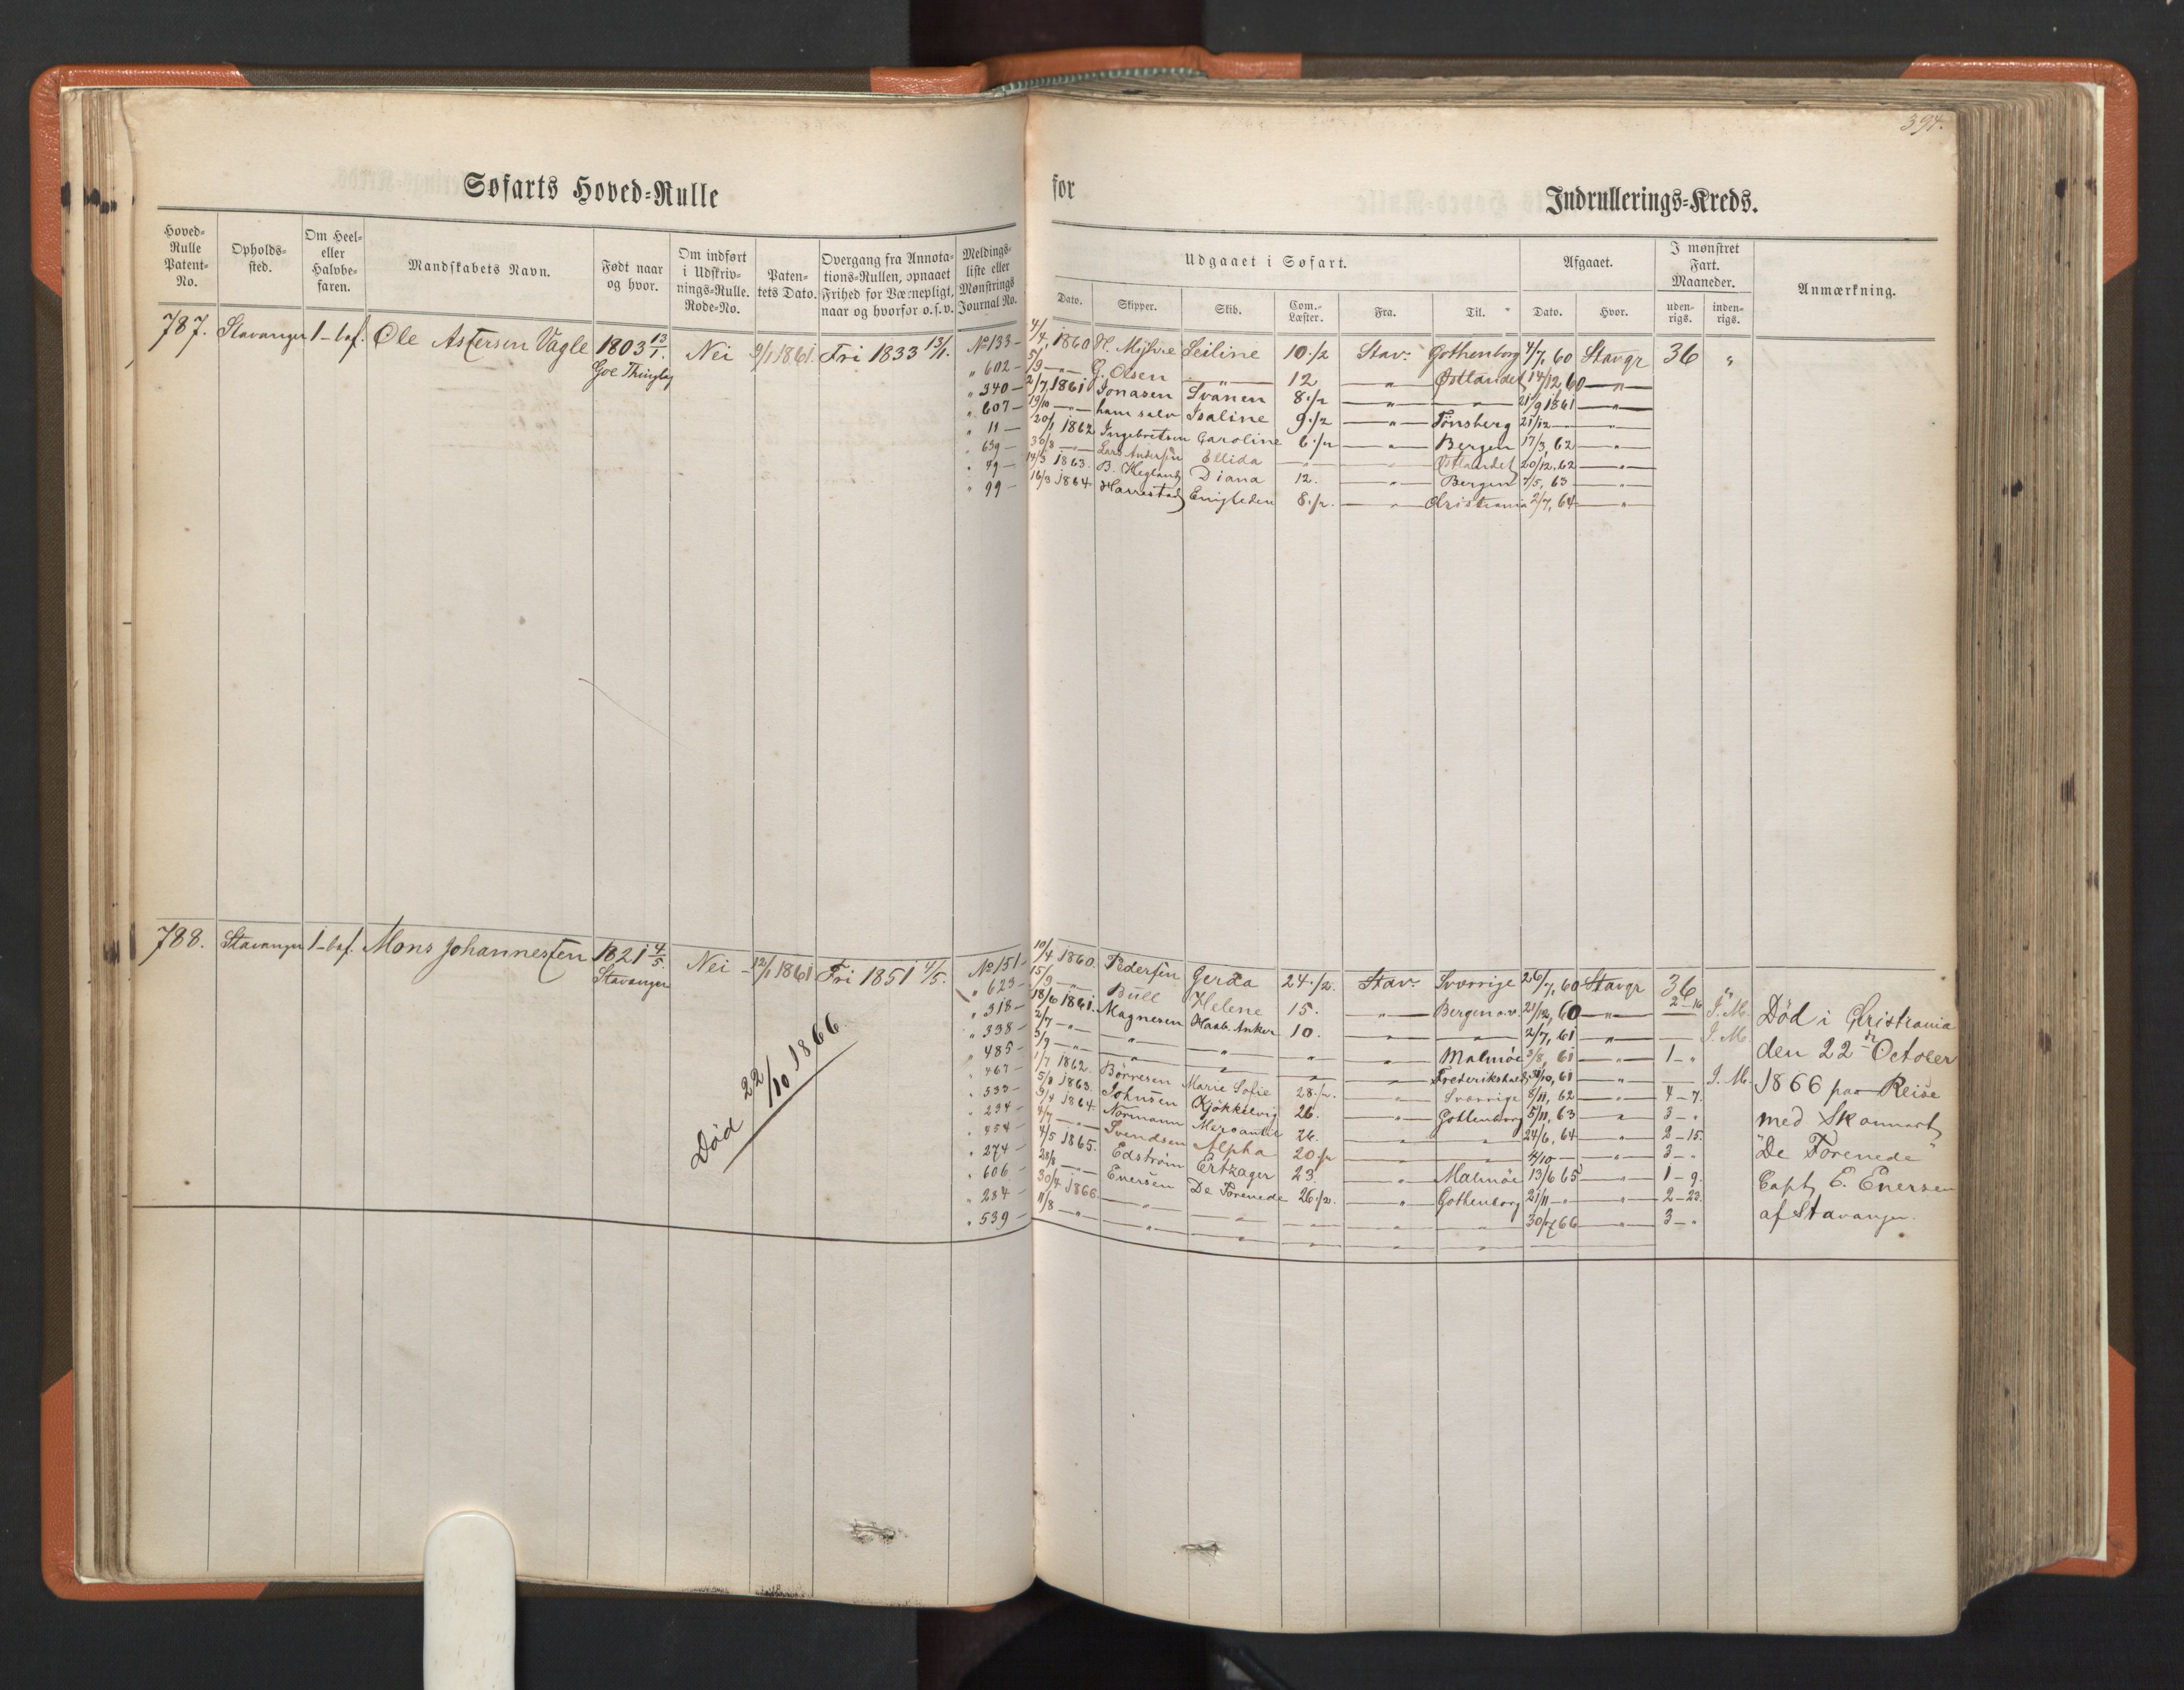 394.
Søfarts Hoved=Rulle for Indrullerings=Kreds.
Hoved=Rulle Patent=No.
Opholds=sted.
Om Heel= eller Halvbe=faren.
Mandskabets Navn.
Født naar og hvor.
Om indført i Udskriv=nings=Rulle. Rode=No.
Paten=tets Dato.
Overgang fra Annota=tions=Rullen, opnaaet Frihed for Værnepligt, naar og hvorfor o. s. v.
Meldings=liste eller Mønstrings Journal No.
Udgaaet i Søfart.
Dato. Skipper. Skib. Com.=Læster. Fra. Til.
Afgaaet.
Dato. Hvor.
I mønstret Fart. Maaneder.
uden=rigs. inden=rigs.
Anmærkning.
787. Stavanger 1-bef. Ole Astersen Vagle 1803 13/1. Nei 9/1 1861. Fri 1833 13/1. No 133 - 4/4, 1860 Seiline 10 1/2 Stav. Gothenborg 4/7, 60 Stavgr 36 "
" 602 - 5/9 -"- G. Olsen -"- 12 -"- Østlandet 14/12, 60 -"-
" 340 - 2/7 1861 Jonasen Svanen 8 1/2 -"- -"- 21/9 1861 -"-
" 607 - 19/10 -"- ham selv Isaline 9 1/2 -"- Tønsberg 21/12 -"-
" 11 - 20/1 1862 Ingebretsen Caroline 6 1/2 -"- Bergen 17/3, 62 -"-
" 639 - 30/8 -"- Lars Andersen Ellida -"- -"- Østlandet 20/12, 62 -"-
" 49 - 14/3 1863. B. Hegland Diana 12. -"- Bergen 7/5, 63 -"-
" 99 - 16/3 1864 Harrestad Enigheden 8 1/2. -"- Christiania 2/7, 64 -"-
788. Stavanger 1-bef. Mons Johannessen 1821 4/5. Stavanger Nei 12/1 1861 Fri 1851 4/5. No 151 - 10/4 1860. Pedersen Gerda 24 1/2. Stav. Sverrige 26/7, 60 Stavgr 36 "
" 623 - 15/9 -"- Bull Helene 15. -"- Bergen o.v. 21/12, 60 -"- 2-16 J. M.
" 318 - 18/6 1861. Magnesen Haab. Anker 10. -"- -"- 2/7, 61 -"- J. M.
" 338 - 2/7 -"- -"- -"- -"- Malmøe 3/8, 61 -"- 1- "
" 485 - 3/9 -"- -"- -"- -"- Frederikshald 31/10, 61 -"- J. M.
" 467 - 1/7 1862. Børresen Marie Sofie 28 1/2. -"- Sverrige 8/11, 62 -"- 4-7.
" 533 - 5/8 1863. Johnsen Kjøkkelvig 26. -"- Gothenborg 5/11, 63 -"- 3- "
" 234 - 9/4 1864. Normann Mercantil 26. -"- -"- 24/6, 64 -"- 2-15.
" 454 - 4/7 -"- Svendsen Alpha 20 1/2 -"- -"- 4/10 - -"- 3- "
" 274 - 4/5 1865. Edstrøm Ertzager 23. -"- Malmøe 13/6 65 -"- 1-9.
" 606 - 28/8 -"- Enersen De Forenede 26 1/2. -"- Gothenborg 21/11 -"- -"- 2-23.
" 284 - 30/4 1866. -"- -"- -"- -"- -"- 30/7 66 -"- 3- "
" 539 - 11/8 -"- -"- -"- -"- -"- -"-
Død 22/10 1866.
Død i Christiania
den 22de October
1866 paa Reise
med Skonnert
"De Forenede"
Capt. E. Enersen
af Stavanger.